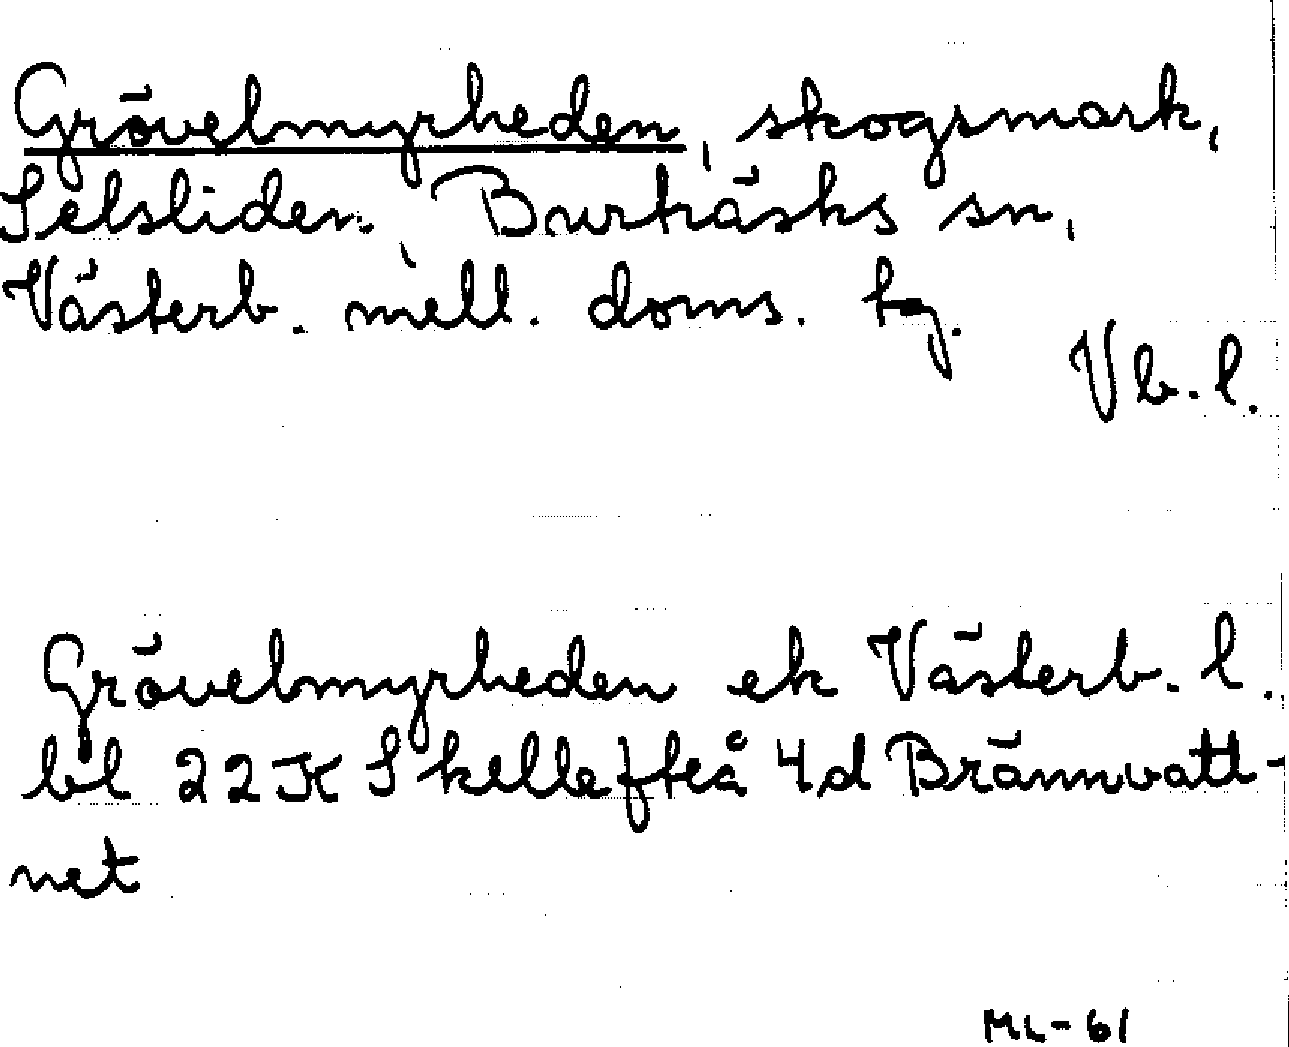 Grövelmyrheden, skogsmark,
Selsliden, Burträsks sn,
Västerb. mell. doms. tg.
Vb. l.
Grövelmyrheden ek Västerb. l.
bl 22K Skellefteå 4d Brännvatt-
net
ML-61